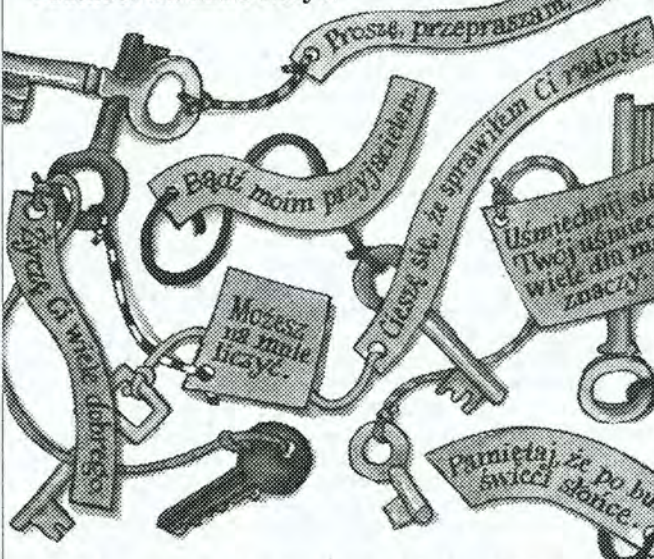 Proszę, przepraszam,
Bądź moim przyjacielem.
Cieszę się, że sprawiłem Ci radość.
Uśmiechnij się
Twój uśmiech
wiele dla
znaczy.
Życzę Ci wiele dobrego
Możesz
na mnie
liczyć.
Pamiętaj, że po
świeci słońce.